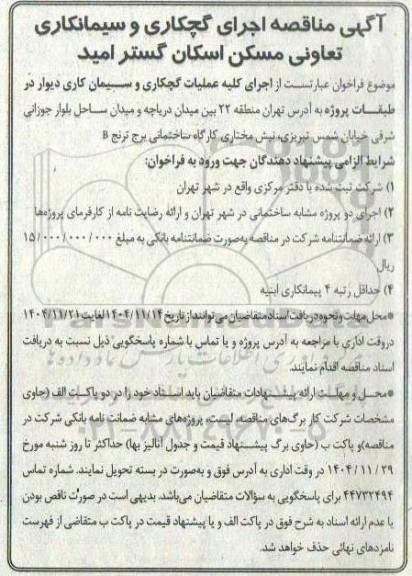 آگهی مناقصه اجرای گچکاری و سیمانکاری
تعاونی مسکن اسکان گستر امید
موضوع فراخوان عبارتست از اجرای کلیه عملیات گچکاری و سیمان کاری دیوار در
طبقات پروژه به آدرس تهران منطقه ۲۲ بین میدان دریاچه و میدان ساحل بلوار جوزانی
شرقی خیابان شمس تبریزی، نبش مختاری، کارگاه ساختمانی برج ترنج B
شرایط الزامی پیشنهاد دهندگان جهت ورود به فراخوان:
۱) شرکت ثبت شده با دفتر مرکزی واقع در شهر تهران
۲) اجرای دو پروژه مشابه ساختمانی در شهر تهران و ارائه رضایت نامه از کارفرمای پروژه‌ها
۳) ارائه ضمانتنامه شرکت در مناقصه به‌صورت ضمانتنامه بانکی به مبلغ ۱۵/۰۰۰/۰۰۰/۰۰۰
ریال
۴) حداقل رتبه ۴ پیمانکاری ابنیه
●محل مهلت و نحوه دریافت اسناد متقاضیان می‌توانند از تاریخ ۱۴۰۴/۱۱/۱۴ لغایت ۱۴۰۴/۱۱/۲۱
در وقت اداری با مراجعه به آدرس پروژه و یا تماس با شماره پاسخگویی ذیل نسبت به دریافت
اسناد مناقصه اقدام نمایند.
●محل و مهلت ارائه پیشنهادات متقاضیان باید اسناد خود را در دو پاکت الف (حاوی
مشخصات شرکت کار برگ‌های مناقصه، لیست، پروژه‌های مشابه ضمانت نامه بانکی شرکت در
مناقصه)و پاکت ب (حاوی برگ پیشنهاد قیمت و جدول آنالیز بها) حداکثر تا روز شنبه مورخ
۱۴۰۴/۱۱/۲۹ در وقت اداری به آدرس فوق و به‌صورت در بسته تحویل نمایند. شماره تماس
۴۴۷۳۲۴۹۴ برای پاسخگویی به سؤالات متقاضیان می‌باشد. بدیهی است در صورت ناقص بودن
یا عدم ارائه اسناد به شرح فوق در پاکت الف و یا پیشنهاد قیمت در پاکت ب متقاضی از فهرست
نامزدهای نهائی حذف خواهد شد.